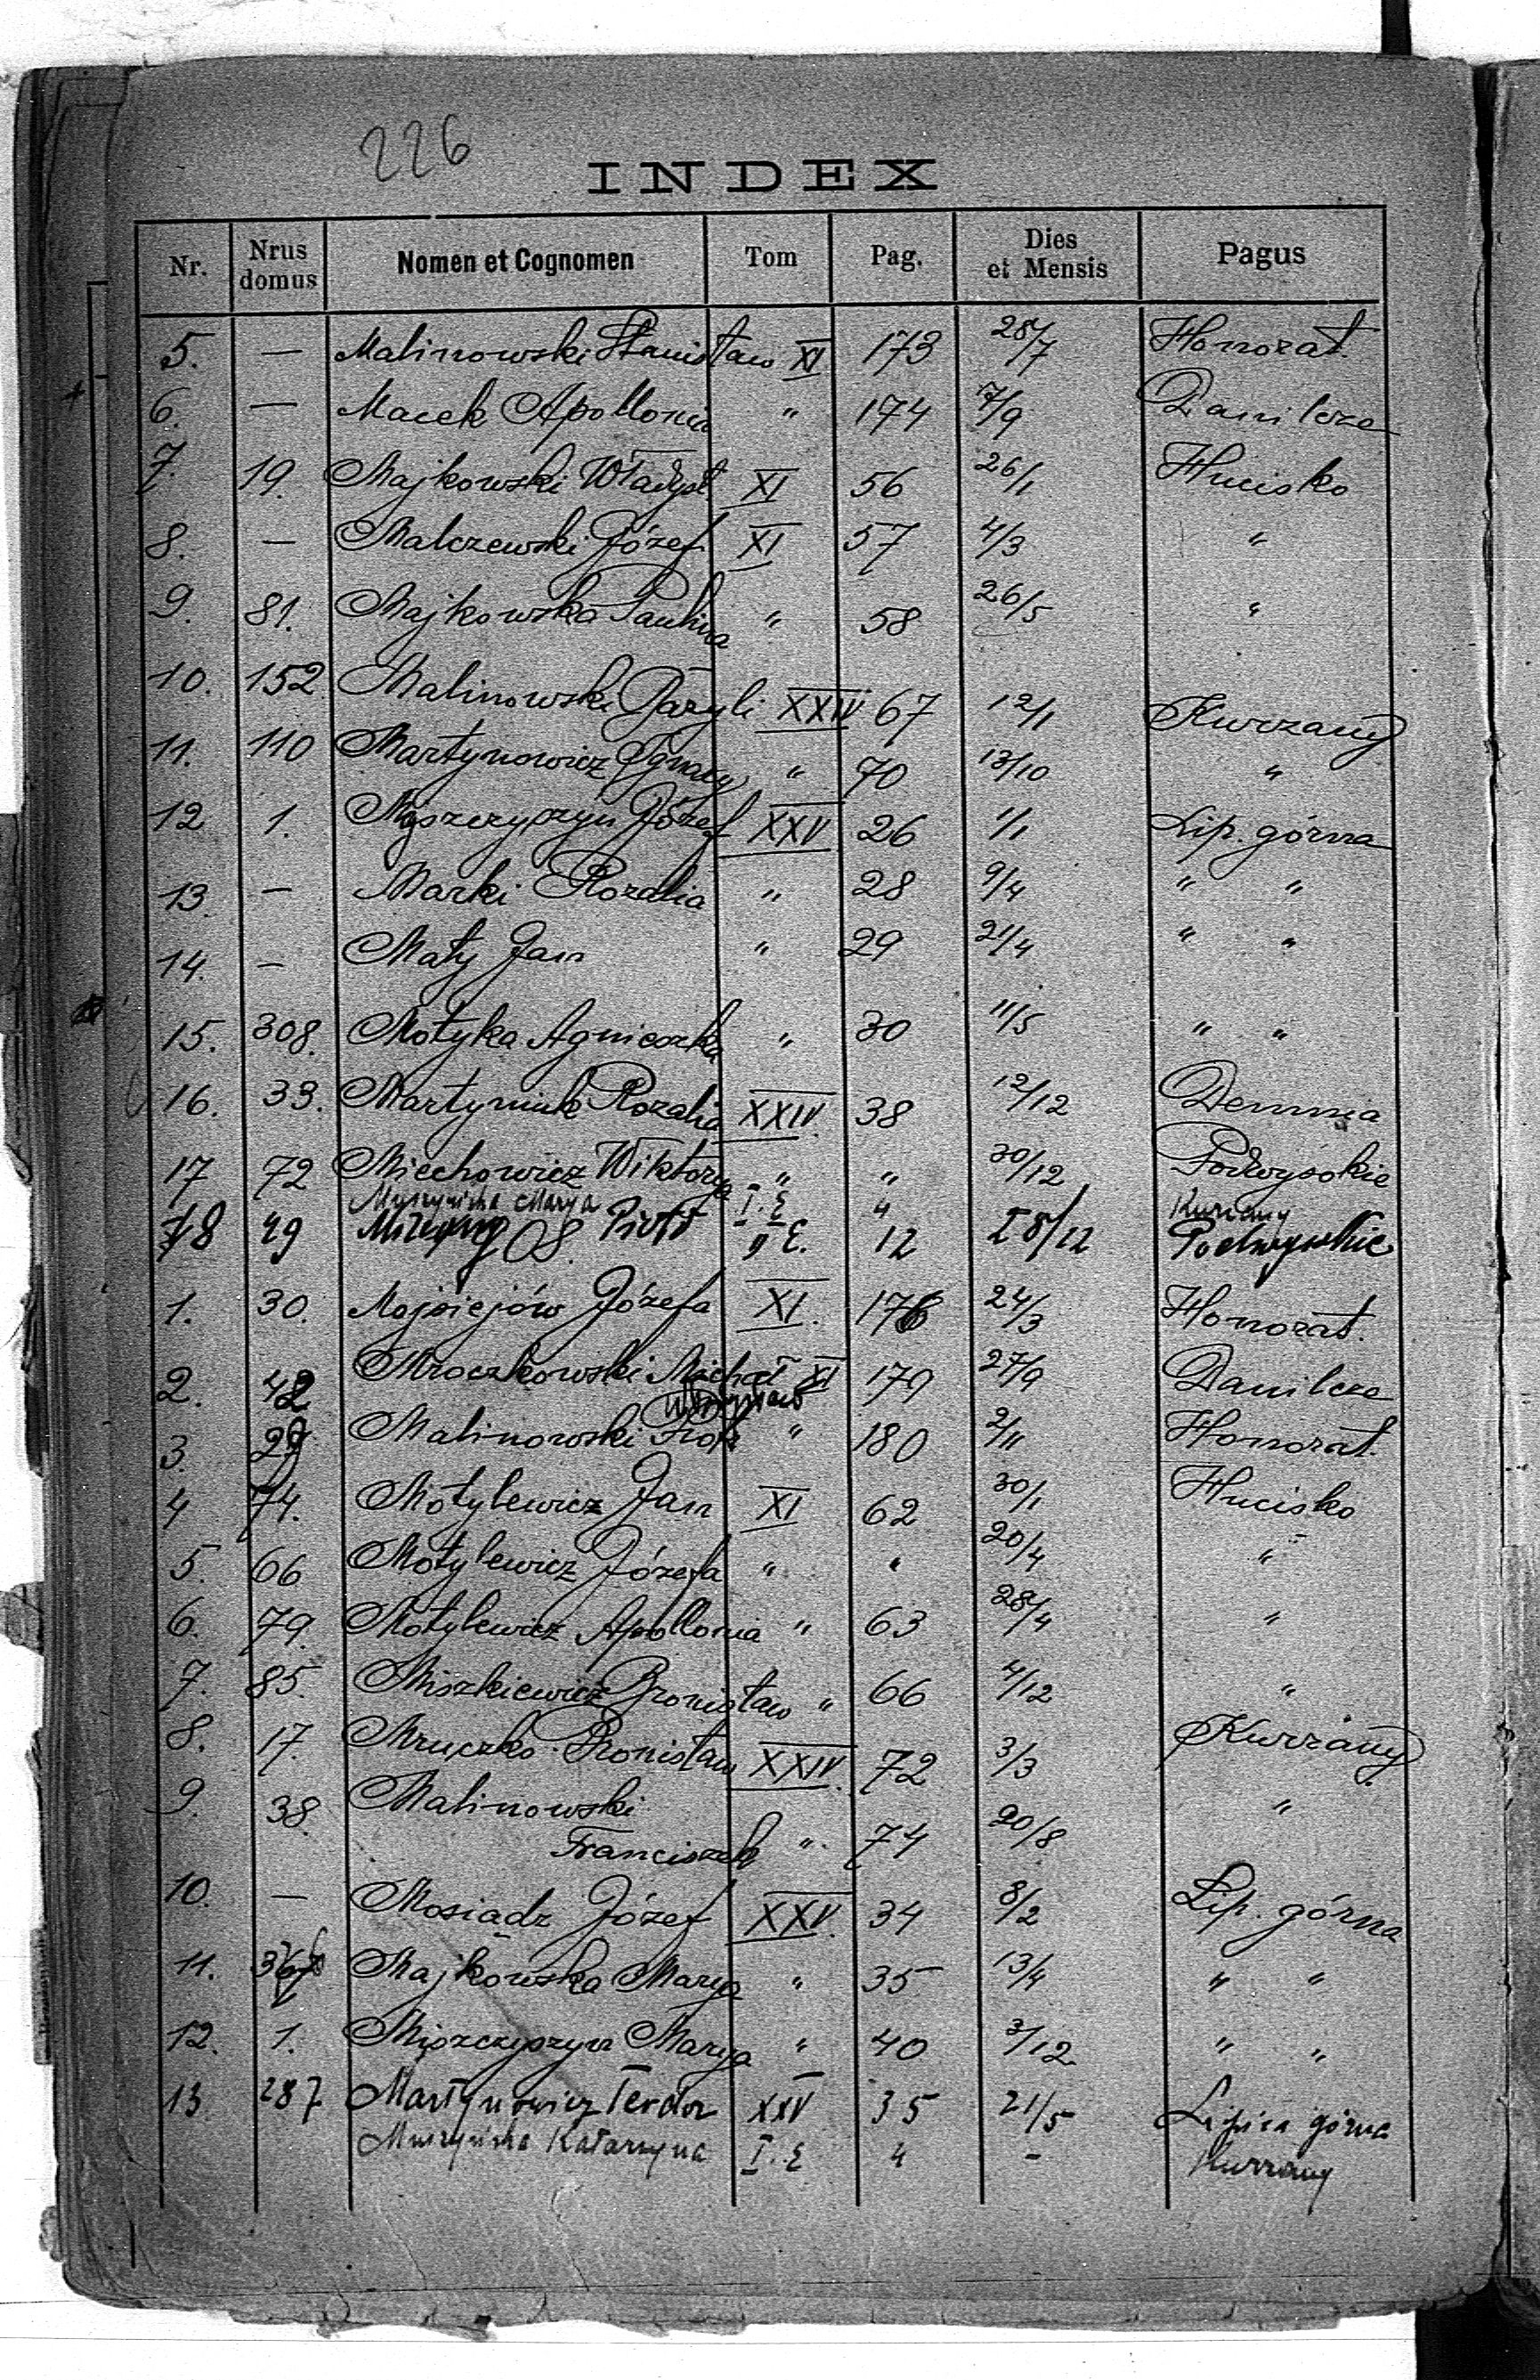 226
INDEX
Nr. Nrus domus Nomen et Cognomen Tom Pag. Dies et Mensis Pagus
5. — Malinowski Stanisław XI 173 28/7 Honorat.
6. — Macek Apollonia " 174 7/9 Danilcze
7. 19. Majkowski Władysł XI 56 26/1 Hucisko
8. — Malczewski Józef XI 57 4/3 "
9. 81. Majkowska Paulina " 58 26/5 "
10. 152 Malinowski XXIV 67 12/1 Kurzany
11. 110 Martynowicz Ignacy " 70 13/10 "
12 1. Józef XXV 26 1/1 Lip. górna
13. — Marki Rozalia " 28 9/4 " "
14. — Maty Jan " 29 21/4 " "
15. 308. Motyka Agnieszka " 30 11/5 " "
16. 33. Martyniuk Rozalia XXIV 38 12/12 Demnia
17 72 Miechowicz Wiktorya " " 30/12 Podwysokie
Muszyńska Marya I. E " Kurzany
18 49 Piotr " E. 12 28/12 Podwysokie
1. 30. Mojsiejów Józefa XI. 176 24/3 Honorat.
2. 42 Mroczkowski Michał XI 179 27/9 Danilcze
3. 29 Malinowski Piotr " 180 2/11 Honorat.
4 74. Motylewicz Jan XI 62 30/1 Hucisko
5. 66 Motylewicz Józefa " " 20/4 "
6. 79. Motylewicz Apollonia " 63 28/4 "
7. 85. Miszkiewicz Bronisław " 66 4/12 "
8. 17. Mruczko Bronisław XXIV. 72 3/3 Kurzany
9. 38. Malinowski
Franciszek " 74 20/8 "
10. — Mosiądz Józef XXV. 34 8/2 Lip. górna
11. Majkowska Marya " 35 13/4 " "
12. 1. Miszczyszyn Marya " 40 3/12 " "
13 287 Martynowicz Teodor XXV 35 21/5 Lipica górna
Muszyńska Katarzyna I. E " - Kurzany